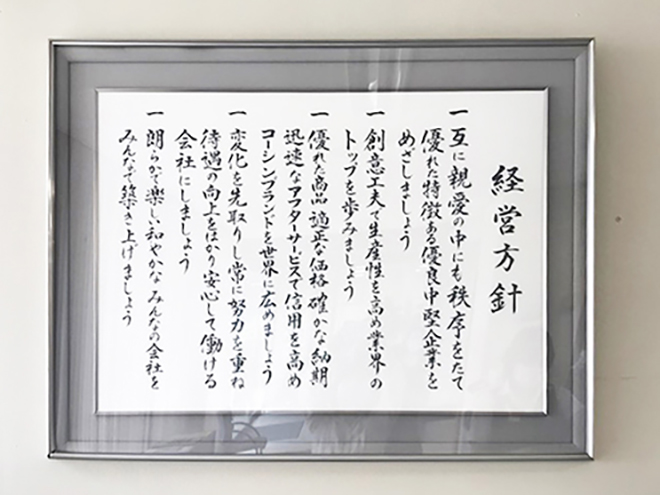 経営方針
一 互に親愛の中にも秩序をたて
優れた特徴ある優良中堅企業を
めざしましょう
一 創意工夫で生産性を高め業界の
トップを歩みましょう
一 優れた商品 適正な価格 確かな納期
迅速なアフターサービスで信用を高め
コーシンブランドを世界に広めましょう
一 変化を先取りし常に努力を重ね
待遇の向上をはかり安心して働ける
会社にしましょう
一 朗らかで楽しい和やかなみんなの会社を
みんなで築き上げましょう